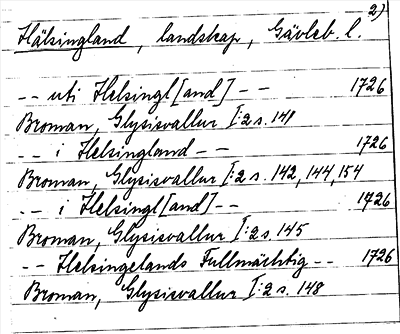 2)
Hälsingland, landskap, Gävleb. l.
-- uti Helsingl[and] -- 1726
Broman, Glysisvallur I:2 s. 148
-- i Helsingland -- 1726
Broman, Glysisvallur I:2 s. 142, 144, 154
-- i Helsingl[and] -- 1726
Broman, Glysisvallur I:2 s. 145
-- Helsingelands Fullmächtig -- 1726
Broman, Glysisvallur I:2 s. 148